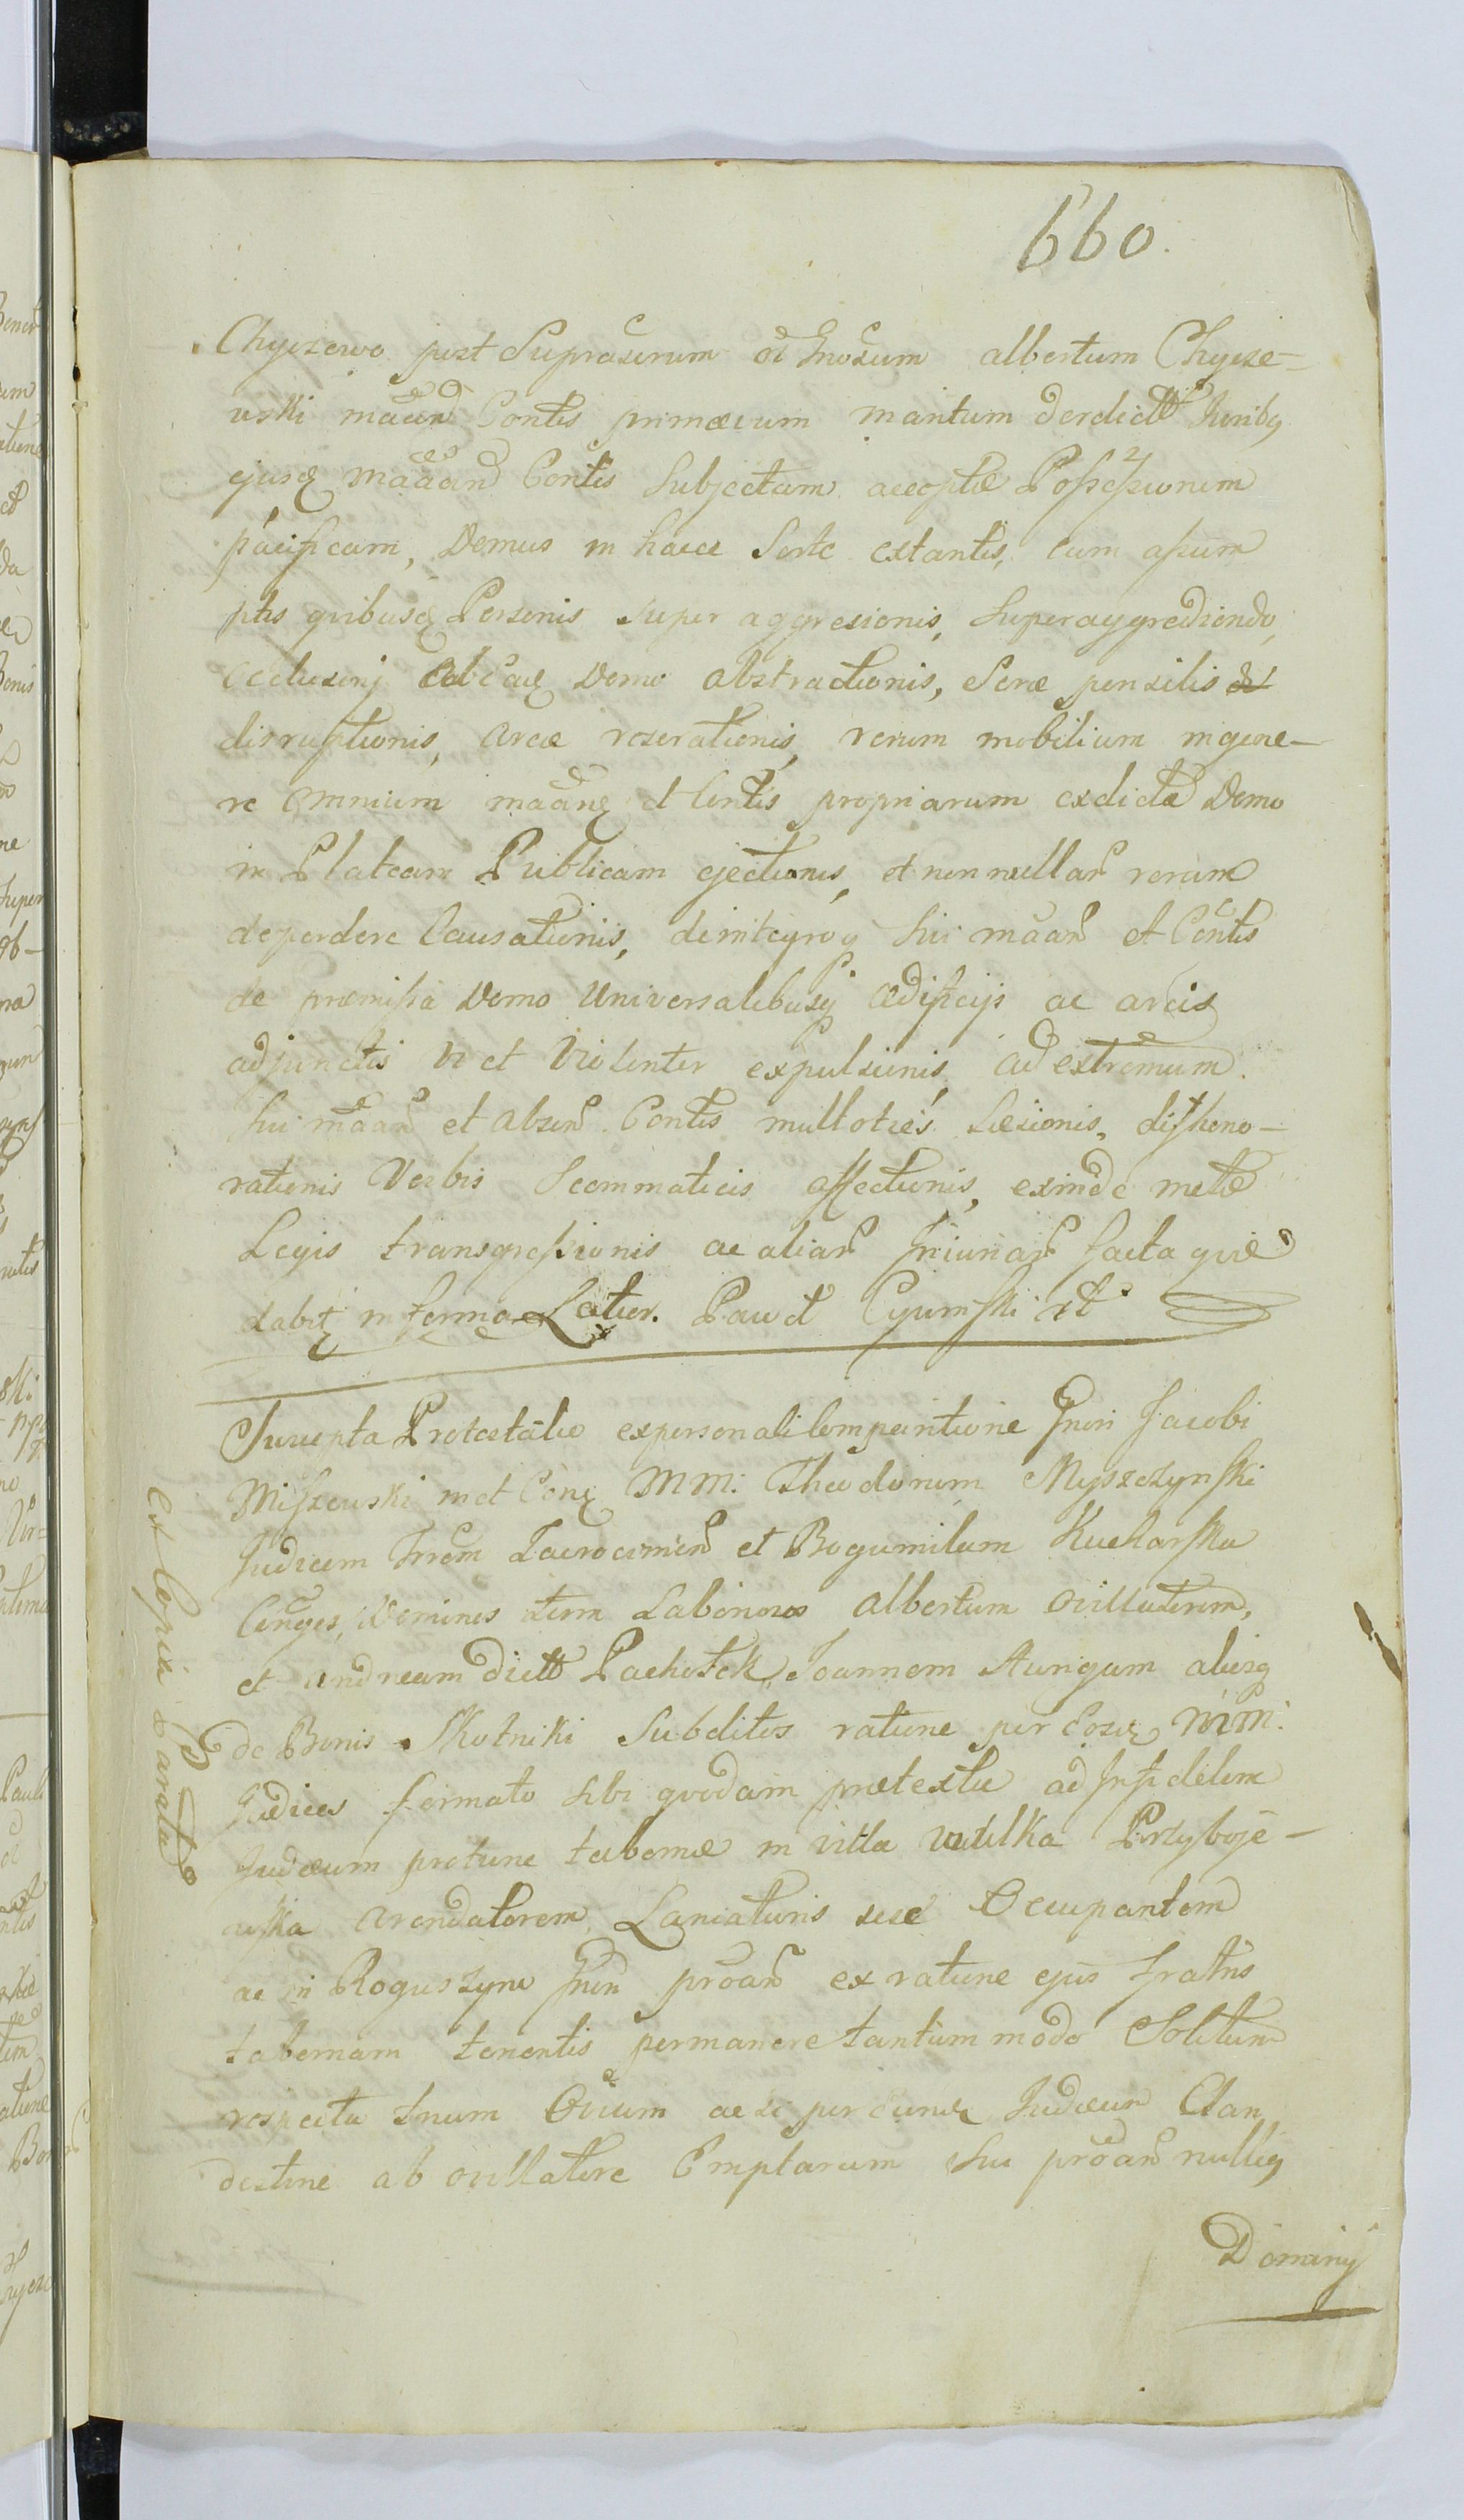 660.
Chyczewo post Suprascrum ol Gnosum albertum Chycze-
wski maan Contis primævum maritum derelict Juribq
ejusq maaan Contis Subjectam acceptæ Possessionem
pacificam, Domus in hacce Sorte extantis, cum assum
ptis quibusq Personis super aggresionis, superaggrediendo,
occlusioni ab eaq Domo abstractionis, Seræ pensilis
disruptionis, arcæ reserationis, rerum mobilium ingene-
re omnium maanq et Contis propriarum exdicta Domo
in Plateam Publicam ejectionis, et non nullar rerum
deperdere Causationis, deintegroq sui maan et Contis
de præmissa Domo Universalibusq ædificijs ac arcis
adjunctis vi et Violenter expulsionis, ad extremum
sui maan et absen Contis multoties Læsionis, dishono-
rationis Verbis Scommaticis affectionis, exinde metæ
Legis transgressionis ac aliar Injuriar facta quæ
dabit in forma Latior. Pawel Cyumski rt
Suscepta Protestatio expersonali Compariitione Gnosi Jacobi
Miszewski in et Conq MM: Theodorum Myszczynski
Judicem Trrem et Bogumilam Kucharska
Conges, Dominos item Laboriosos albertum ovillatorem,
et andream dict Pachołek, Joannem Aurigam aliosq
de Bonis Skotniki Subditos ratione per eosq MM:
Judices formato sibi quodam prætextu ad Infidelem
Judæum protunc tabernæ in villa Wulka Przyboje-
wska arendatorem, Laniaturis sese Occupantem
ac in Roguszyno Gnon proan ex ratione ejus fratris
tabernam tenentis permanere tantummodo Solitum
respectu trium Ovium ac si per eunq Judæum Clan
destine ab ovillatore Emptarum sui proan nullig
Dominij
Ex Copia Parata